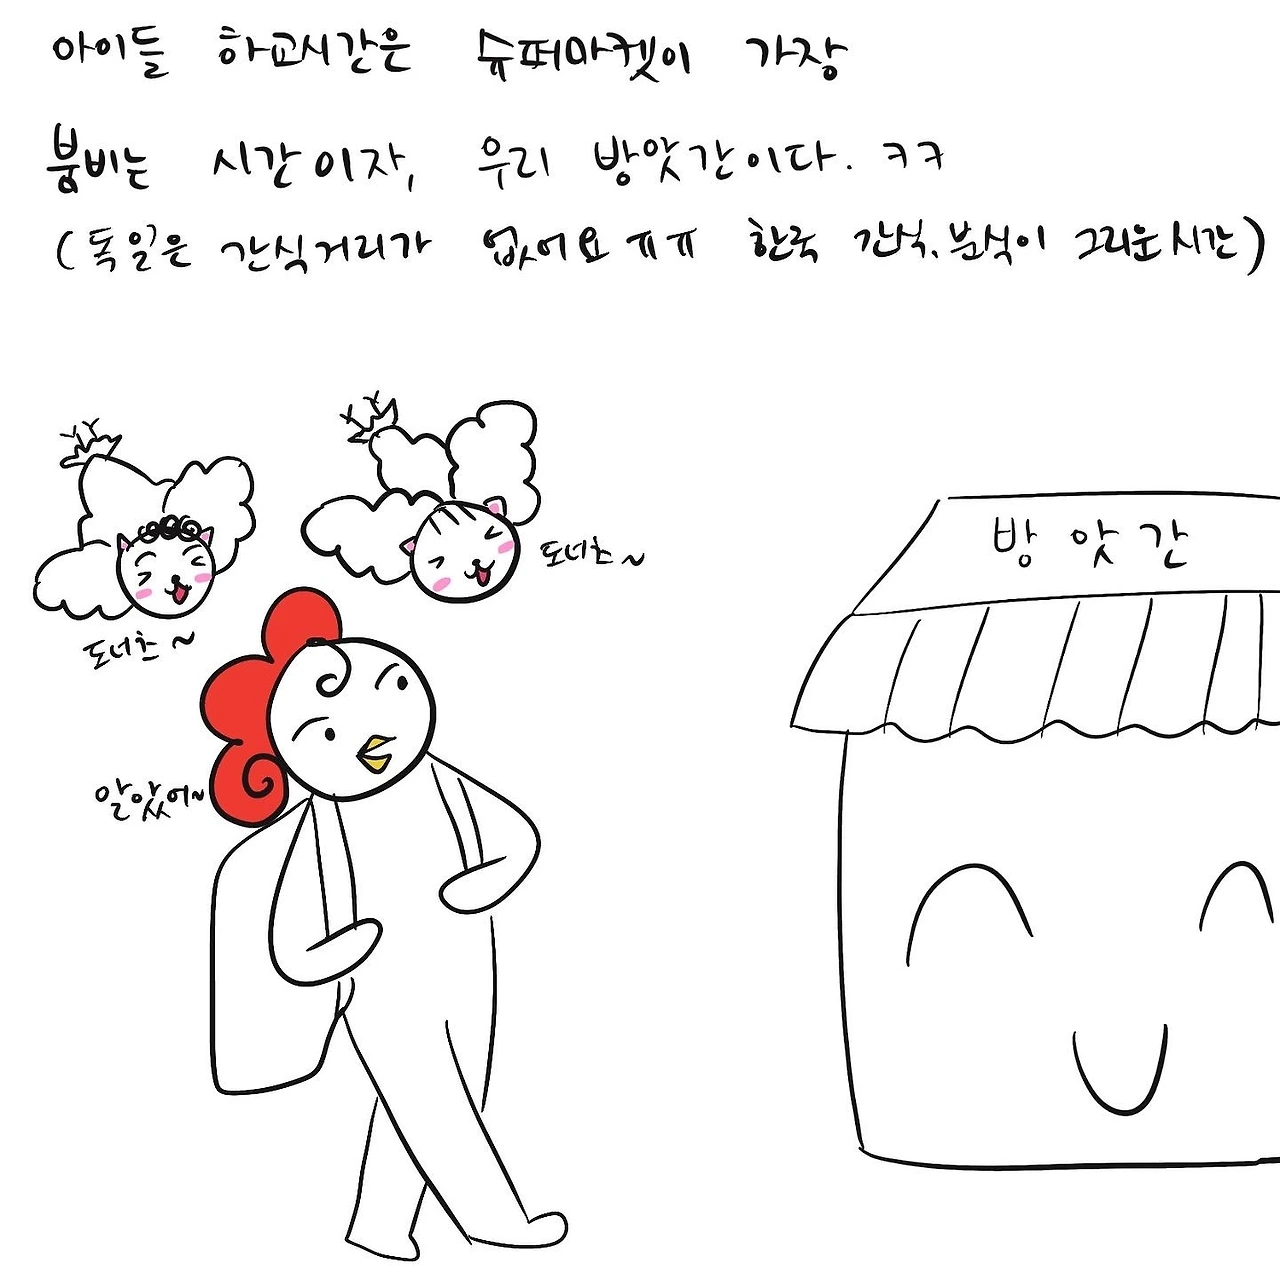 아이들 하교시간은 슈퍼마켓이 가장
붐비는 시간이자, 우리 방앗간이다. ㅋㅋ
(독일은 간식거리가 없어요ㅠㅠ 한국 간식, 분식이 그리운시간)
도너츠~
도너츠~
방앗간
알았어~